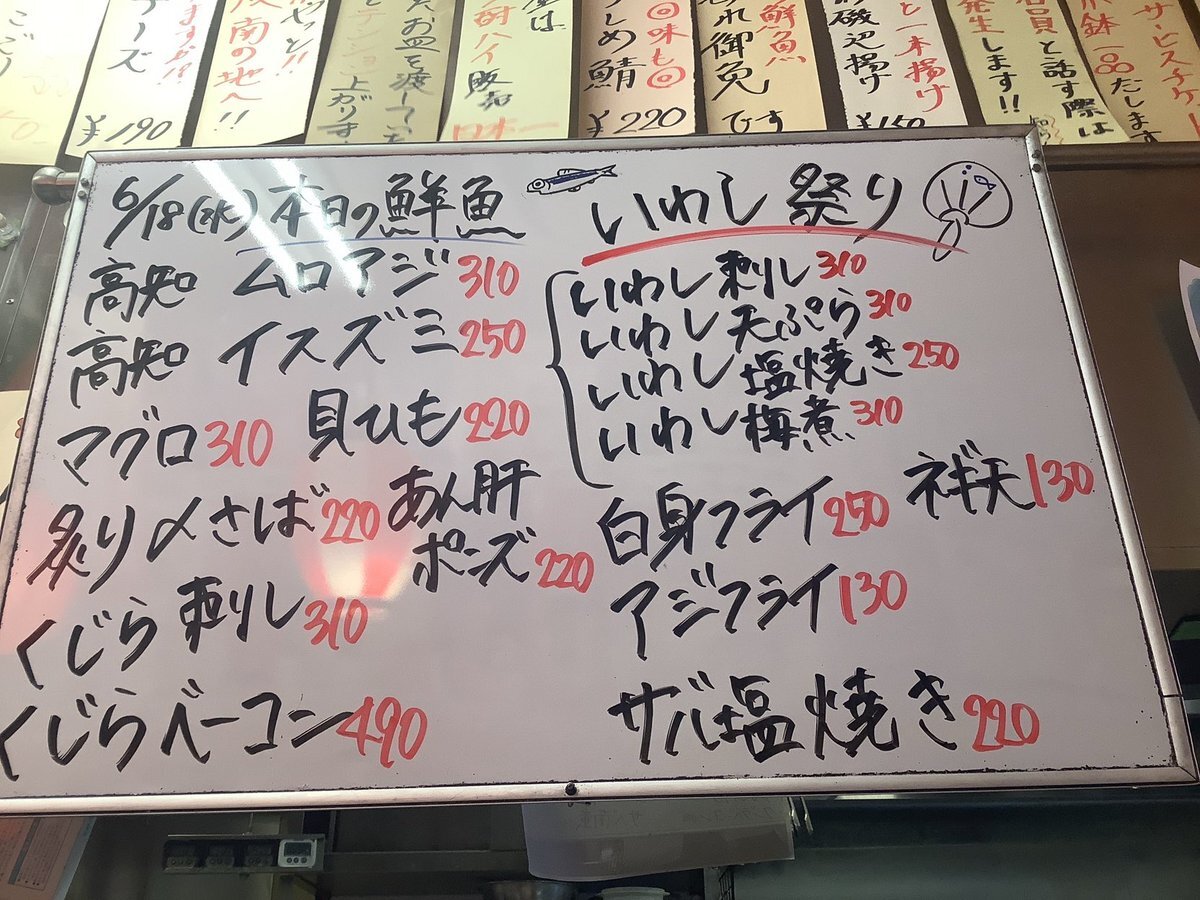 ¥190
南の地へ!!
お皿を渡して
テンション上がります
酎ハイ
日本一
◎味も◎
しめ鯖
¥220
鮮魚
御免
です
と一本揚げ
磯辺揚げ
¥150
発生します!!
店員と話す際は
サービスチケ
鉢一品だします
6/18(水) 本日の鮮魚
高知 ムロアジ310
高知 イスズミ250
マグロ310 貝ひも220
炙り〆さば220 あん肝
ポンズ220
くじら刺し310
くじらベーコン490
いわし祭り
いわし刺し310
いわし天ぷら310
いわし塩焼き250
いわし梅煮310
白身フライ250 ネギ天130
アジフライ130
サバ塩焼き220